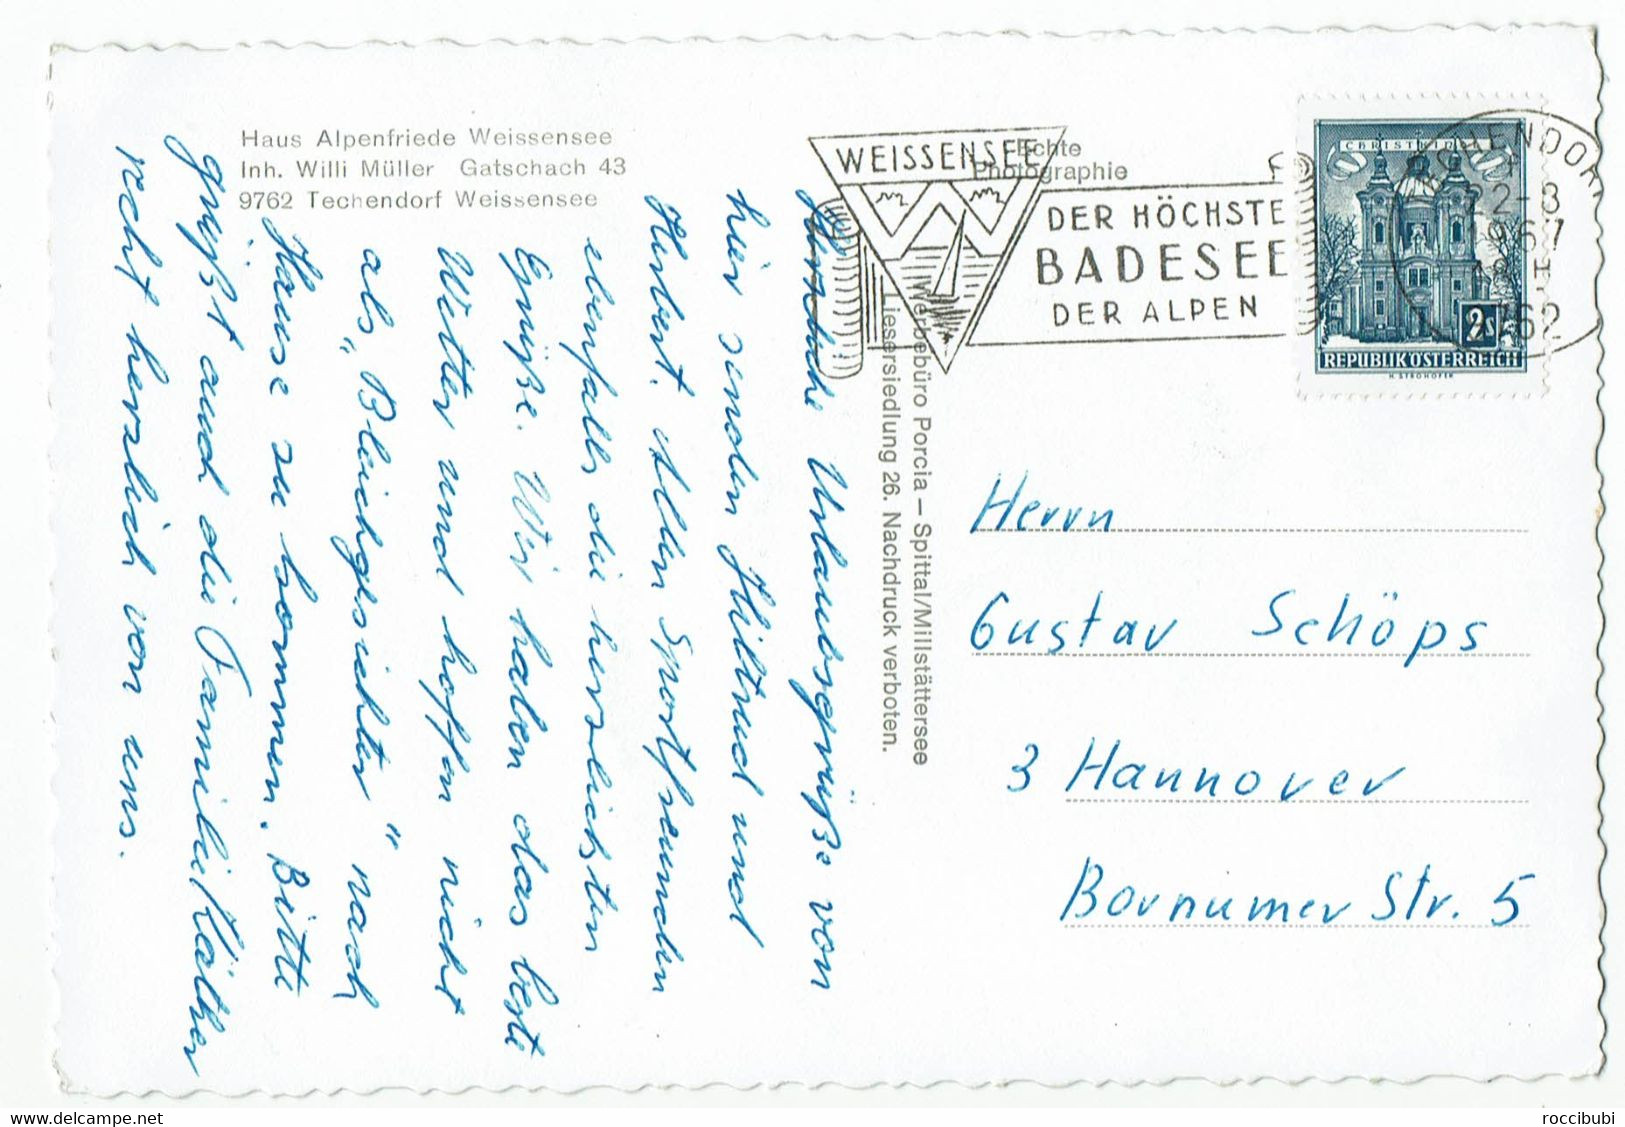 Haus Alpenfriede Weissensee
Inh. Willi Müller Gatschach 43
9762 Techendorf Weissensee
Echte
Photographie
WEISSENSEE
DER HÖCHSTE
BADESEE
DER ALPEN
CHRISTKINDL
2s
REPUBLIK ÖSTERREICH
H. STROHOFER
TECHENDORF
22-8
1967
9762
Werbebüro Porcia – Spittal/Millstättersee
Liesersiedlung 26. Nachdruck verboten.
Urlaubsgrüße von
hier senden Hiltrud und
Herbert. Allen Sportfreunden
ebenfalls die herzlichsten
Grüße. Wir haben das beste
Wetter und hoffen nicht
als "Bleichgesichter" nach
Hause zu kommen. Bitte
grüßt auch die Familie Käther
recht herzlich von uns.
Herrn
Gustav Schöps
3 Hannover
Bornumer Str. 5
delcampe.net
roccibubi